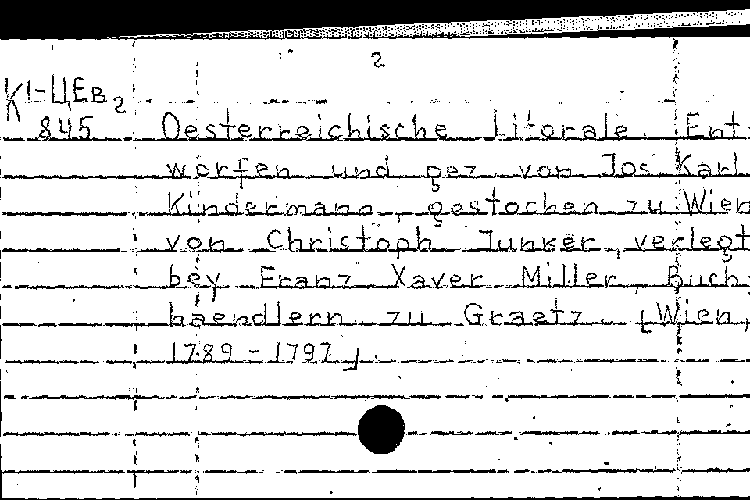 2
K1-ЦЕв2
845 Oesterreichische Litorale Ent
worfen und gez von Jos Karl
Kindermann, gestochen zu Wien
von Christoph Junker, verlegt
bey Franz Xaver Miller Buch,
haendlern zu Graetz. [Wien,
1789-1797].